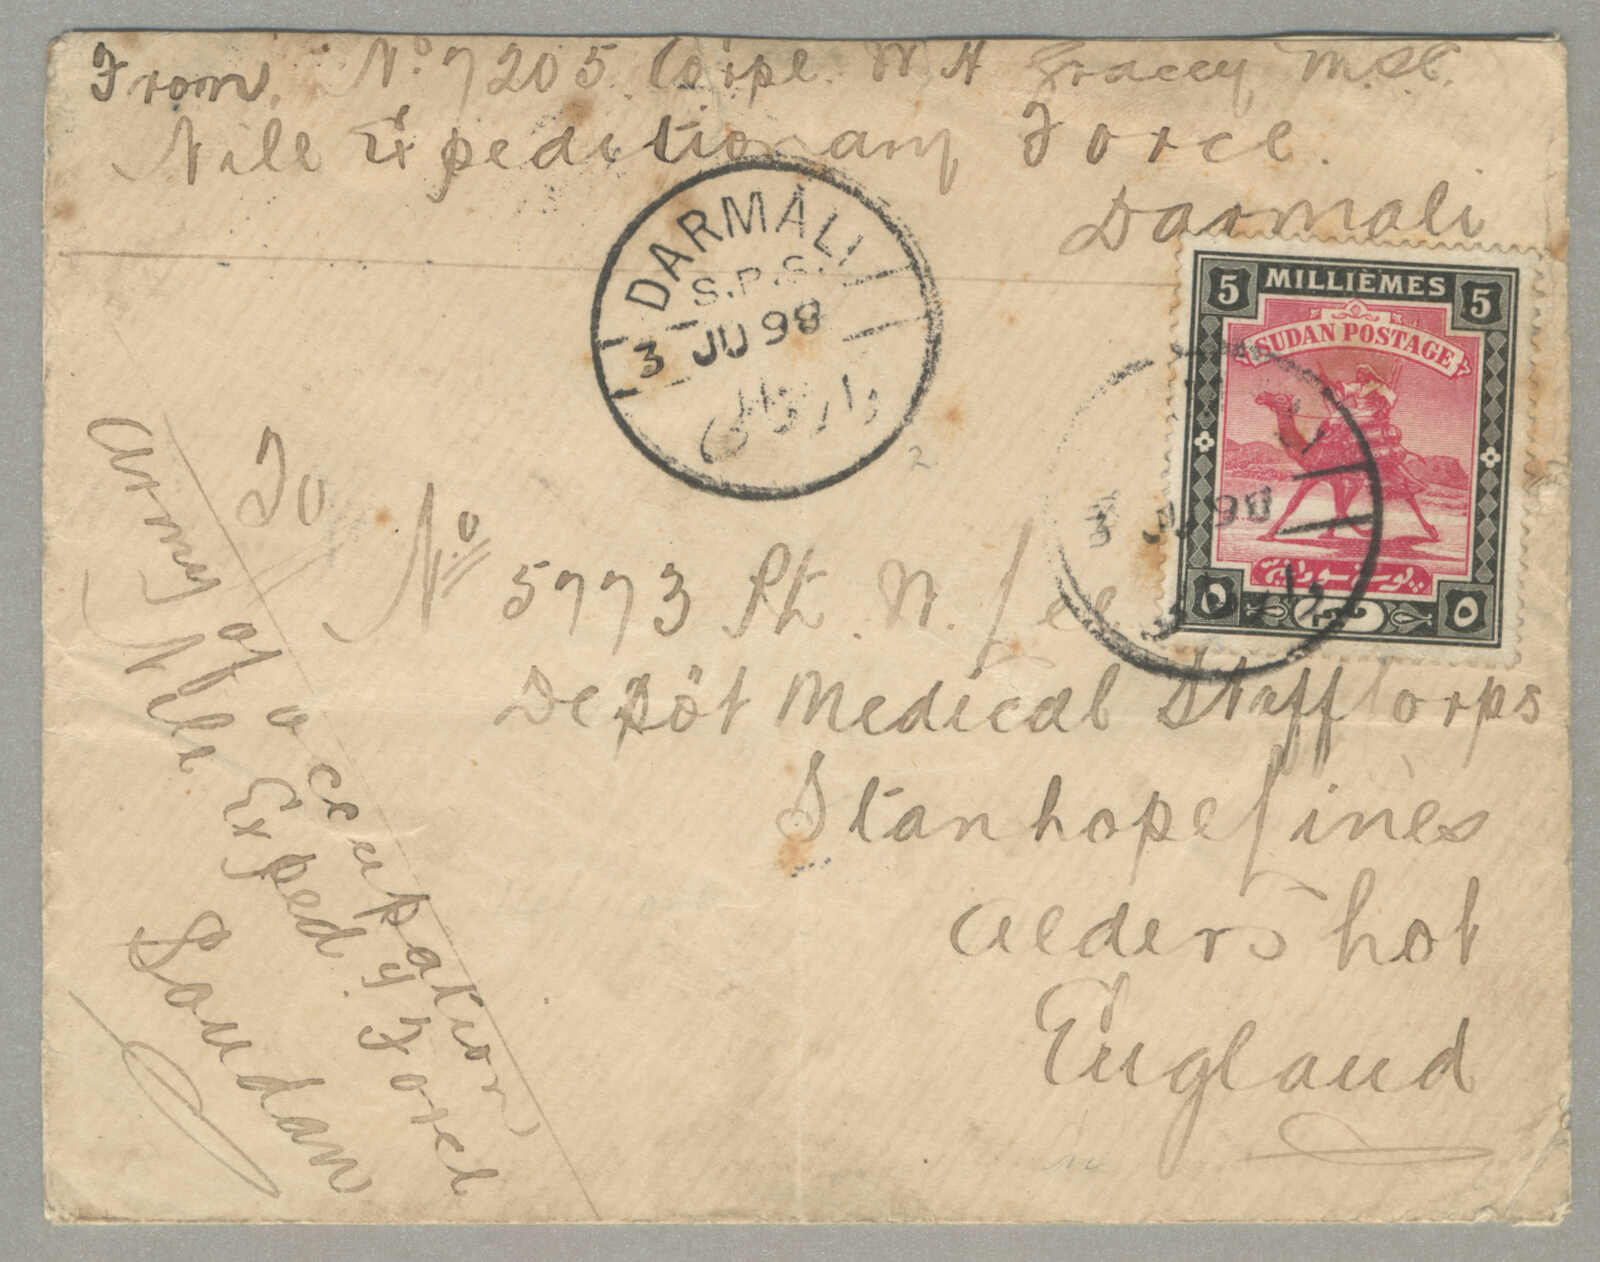 From. No 7205. Corpl. W H Gracey M.S.C.
Nile Expeditionary Force.
Darmali
DARMALI
S.P.S.
3 JU 98
دارمالي
5 MILLIÈMES 5
SUDAN POSTAGE
بوستة سودانية
٥ ٥
3 JU 98
To
No 5773 Pt. W. Lee
Depôt Medical Staff Corps
Stanhope Lines
Aldershot
England
Army of occupation
Nile Exped'y Force
Soudan